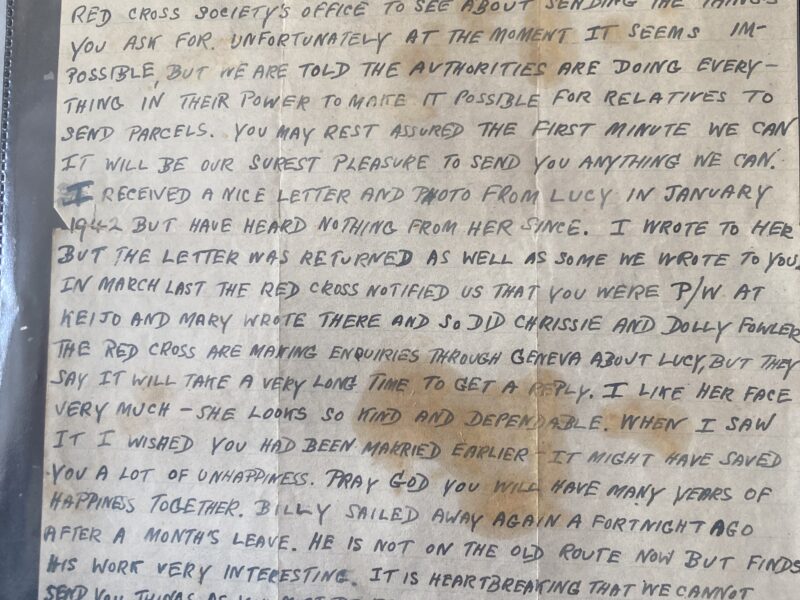 RED CROSS SOCIETY'S OFFICE TO SEE ABOUT SENDING THE THINGS
YOU ASK FOR. UNFORTUNATELY AT THE MOMENT IT SEEMS IM-
POSSIBLE, BUT WE ARE TOLD THE AUTHORITIES ARE DOING EVERY-
THING IN THEIR POWER TO MAKE IT POSSIBLE FOR RELATIVES TO
SEND PARCELS. YOU MAY REST ASSURED THE FIRST MINUTE WE CAN
IT WILL BE OUR SUREST PLEASURE TO SEND YOU ANYTHING WE CAN.
I RECEIVED A NICE LETTER AND PHOTO FROM LUCY IN JANUARY
1942 BUT HAVE HEARD NOTHING FROM HER SINCE. I WROTE TO HER
BUT THE LETTER WAS RETURNED AS WELL AS SOME WE WROTE TO YOU.
IN MARCH LAST THE RED CROSS NOTIFIED US THAT YOU WERE P/W AT
KEIJO AND MARY WROTE THERE AND SO DID CHRISSIE AND DOLLY FOWLER
THE RED CROSS ARE MAKING ENQUIRIES THROUGH GENEVA ABOUT LUCY, BUT THEY
SAY IT WILL TAKE A VERY LONG TIME TO GET A REPLY. I LIKE HER FACE
VERY MUCH - SHE LOOKS SO KIND AND DEPENDABLE. WHEN I SAW
IT I WISHED YOU HAD BEEN MARRIED EARLIER - IT MIGHT HAVE SAVED
YOU A LOT OF UNHAPPINESS. PRAY GOD YOU WILL HAVE MANY YEARS OF
HAPPINESS TOGETHER. BILLY SAILED AWAY AGAIN A FORTNIGHT AGO
AFTER A MONTH'S LEAVE. HE IS NOT ON THE OLD ROUTE NOW BUT FINDS
HIS WORK VERY INTERESTING. IT IS HEARTBREAKING THAT WE CANNOT
SEND YOU THINGS AS